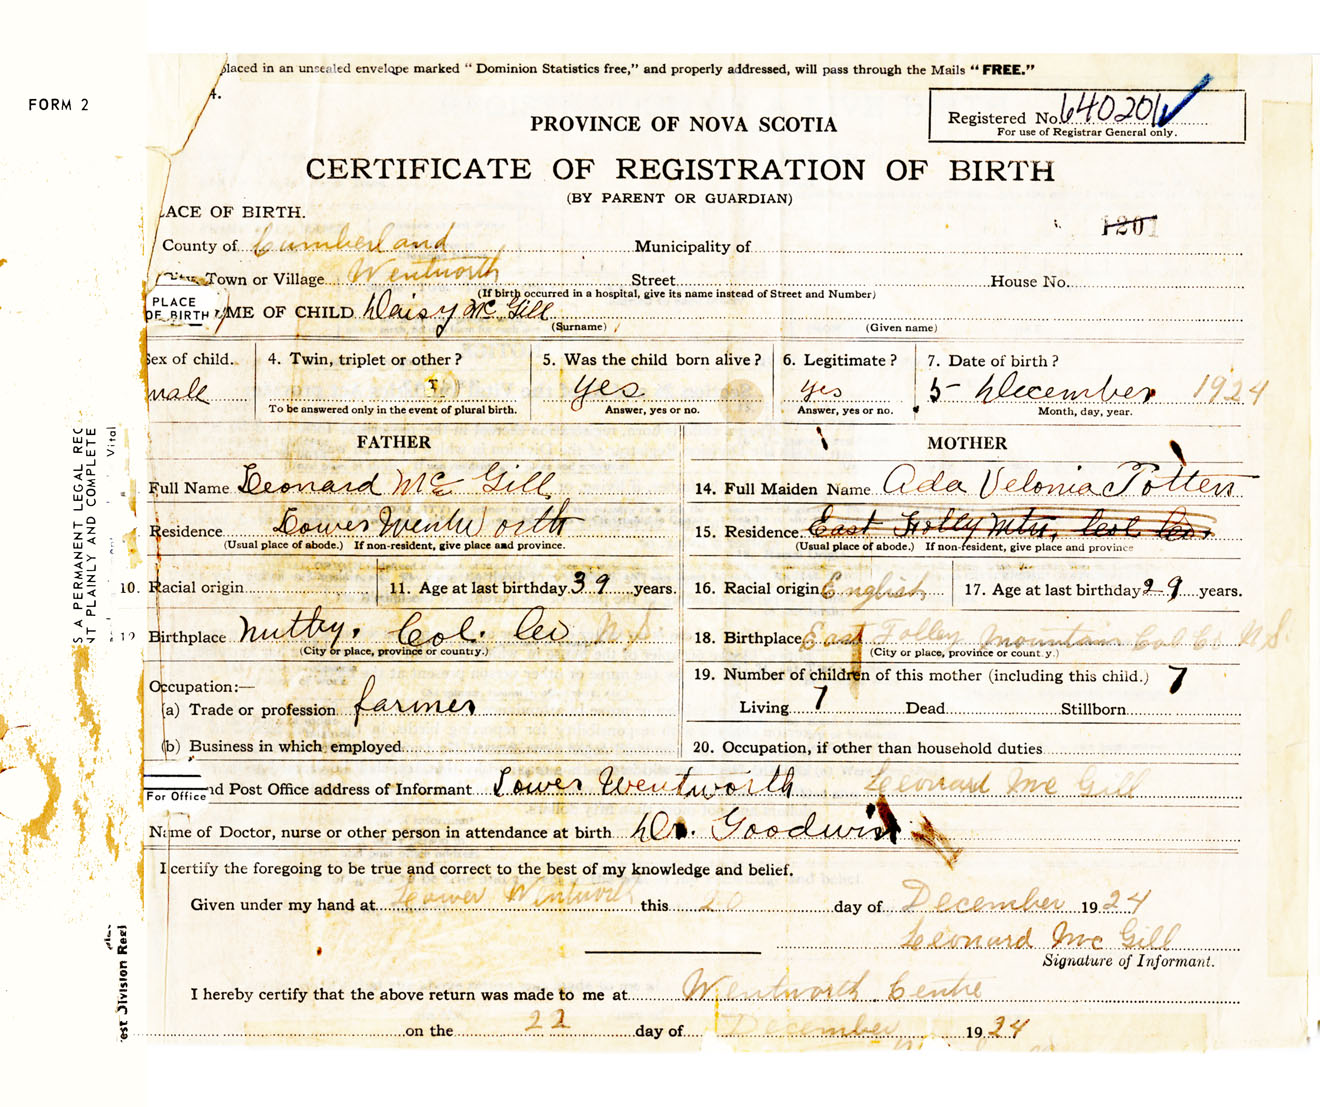 placed in an unsealed envelope marked “ Dominion Statistics free,” and properly addressed, will pass through the Mails “ FREE.”
FORM 2
4.
Registered No. 640201
For use of Registrar General only.
PROVINCE OF NOVA SCOTIA
CERTIFICATE OF REGISTRATION OF BIRTH
(BY PARENT OR GUARDIAN)
ACE OF BIRTH.
1201
County of Cumberland Municipality of
Town or Village Wentworth Street House No.
(If birth occurred in a hospital, give its name instead of Street and Number)
PLACE
OF BIRTH
ME OF CHILD Daisy Mc Gill
(Surname) (Given name)
Sex of child. 4. Twin, triplet or other ? 5. Was the child born alive ? 6. Legitimate ? 7. Date of birth ?
male yes yes 5 - December 1924
To be answered only in the event of plural birth. Answer, yes or no. Answer, yes or no. Month, day, year.
FATHER MOTHER
Full Name Leonard Mc Gill 14. Full Maiden Name Ada Velonia Totten
Residence Lower Wentworth 15. Residence East Folly Mtn, Col Co.
(Usual place of abode.) If non-resident, give place and province. (Usual place of abode.) If non-resident, give place and province
10. Racial origin 11. Age at last birthday 39 years. 16. Racial origin English 17. Age at last birthday 29 years.
12 Birthplace Nuttby. Col. Co N.S. 18. Birthplace East Folley Mountain Col Co N S
(City or place, province or country.) (City or place, province or country.)
19. Number of children of this mother (including this child.) 7
Occupation:—
(a) Trade or profession farmer Living 7 Dead Stillborn
(b) Business in which employed 20. Occupation, if other than household duties
For Office
nd Post Office address of Informant Lower Wentworth Leonard Mc Gill
Name of Doctor, nurse or other person in attendance at birth Dr. Goodwin
I certify the foregoing to be true and correct to the best of my knowledge and belief.
Given under my hand at Lower Wentworth this 20 day of December 1924
Leonard Mc Gill
Signature of Informant.
I hereby certify that the above return was made to me at Wentworth Centre
on the 22 day of December 1924
S A PERMANENT LEGAL REC
NT PLAINLY AND COMPLETE
Vital
Division Regi